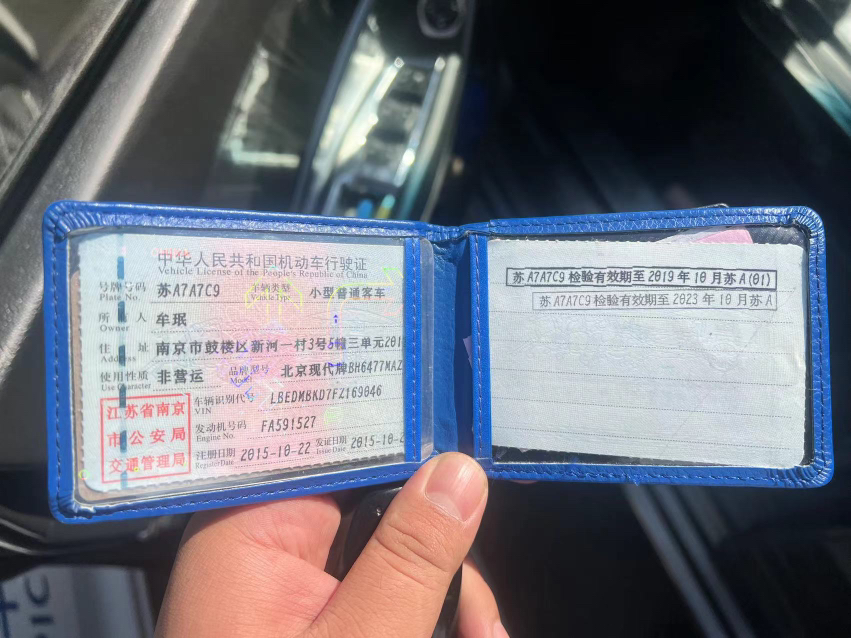 中华人民共和国机动车行驶证
Vehicle License of the People's Republic of China
号牌号码 苏A7A7C9 车辆类型 小型普通客车
Plate No. Vehicle Type
所有人 牟珉
Owner
住址 南京市鼓楼区新河一村3号5幢三单元201
Address
使用性质 非营运 品牌型号 北京现代牌BH6477MAZ
Use Character Model
江苏省南京
市公安局
交通管理局
车辆识别代号 LBEDMBKD7FZ169046
VIN
发动机号码 FA591527
Engine No.
注册日期 2015-10-22 发证日期 2015-10-2
Register Date Issue Date
苏A7A7C9 检验有效期至 2019 年 10 月苏A(01)
苏A7A7C9 检验有效期至 2023 年 10 月苏A